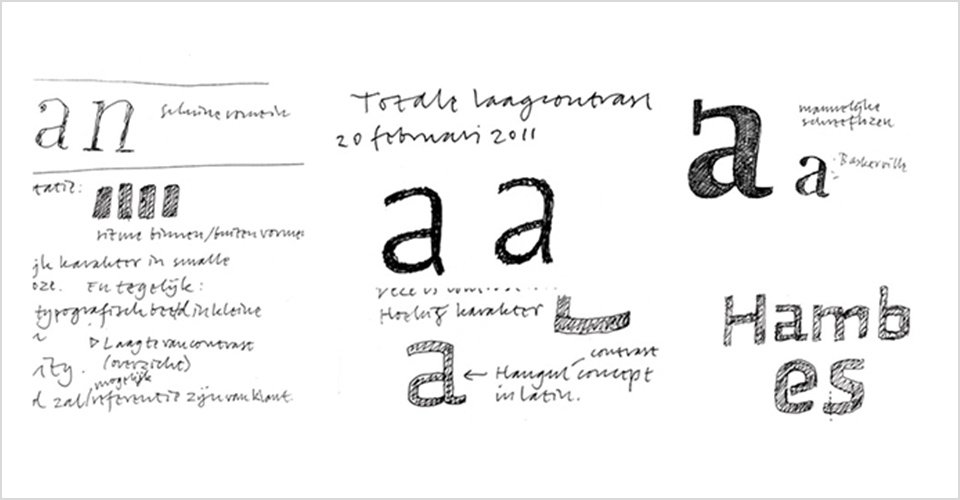 an
ritme binnen/buiten
jk karakter in smalle
oze. En tegelijk:
typografisch beeld in kleine
▷ Laagte van contrast
(overzicht)
ity.
mogelijk
d zal/referentie zijn van klant.
Totale laagcontrast
20 februari 2011
a a
Hoekig karakter
a ← Hangul concept
contrast
in latin.
a
mannelijke
a Baskerville
Hamb
es